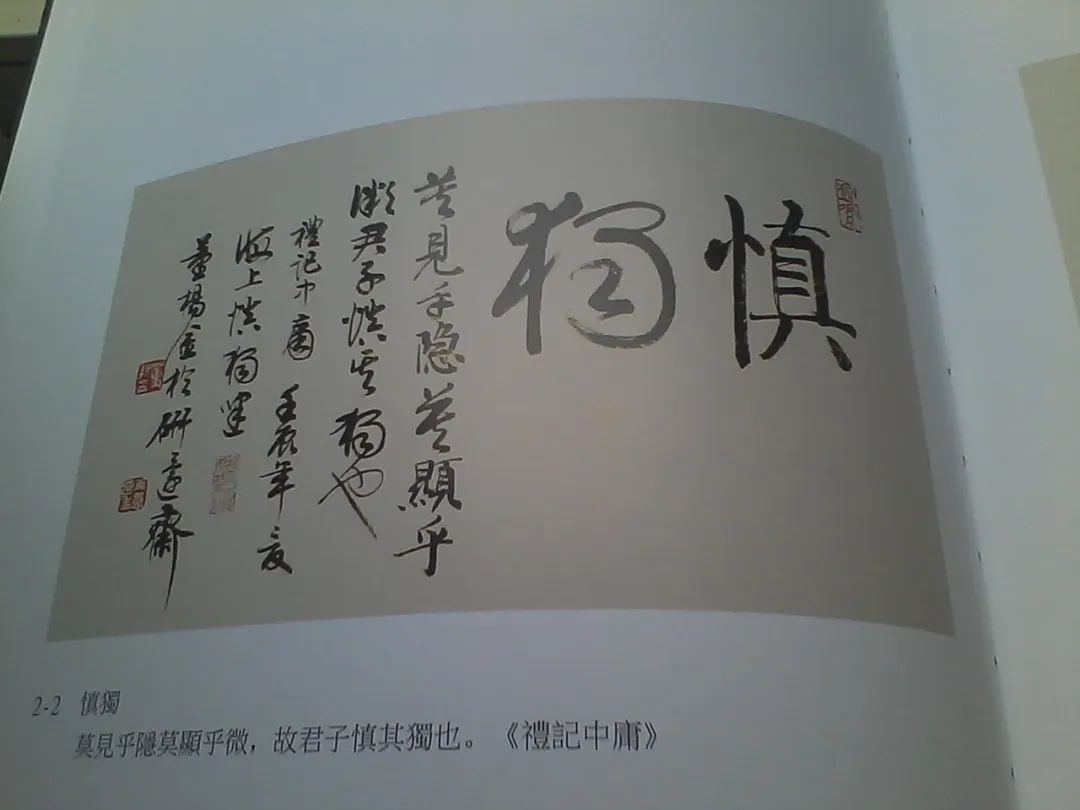 慎獨
莫見乎隐莫顯乎
微君子慎其獨也
禮記中庸 壬辰年夏
海上慎獨
於研齋
2-2 慎獨
莫見乎隱莫顯乎微，故君子慎其獨也。《禮記中庸》